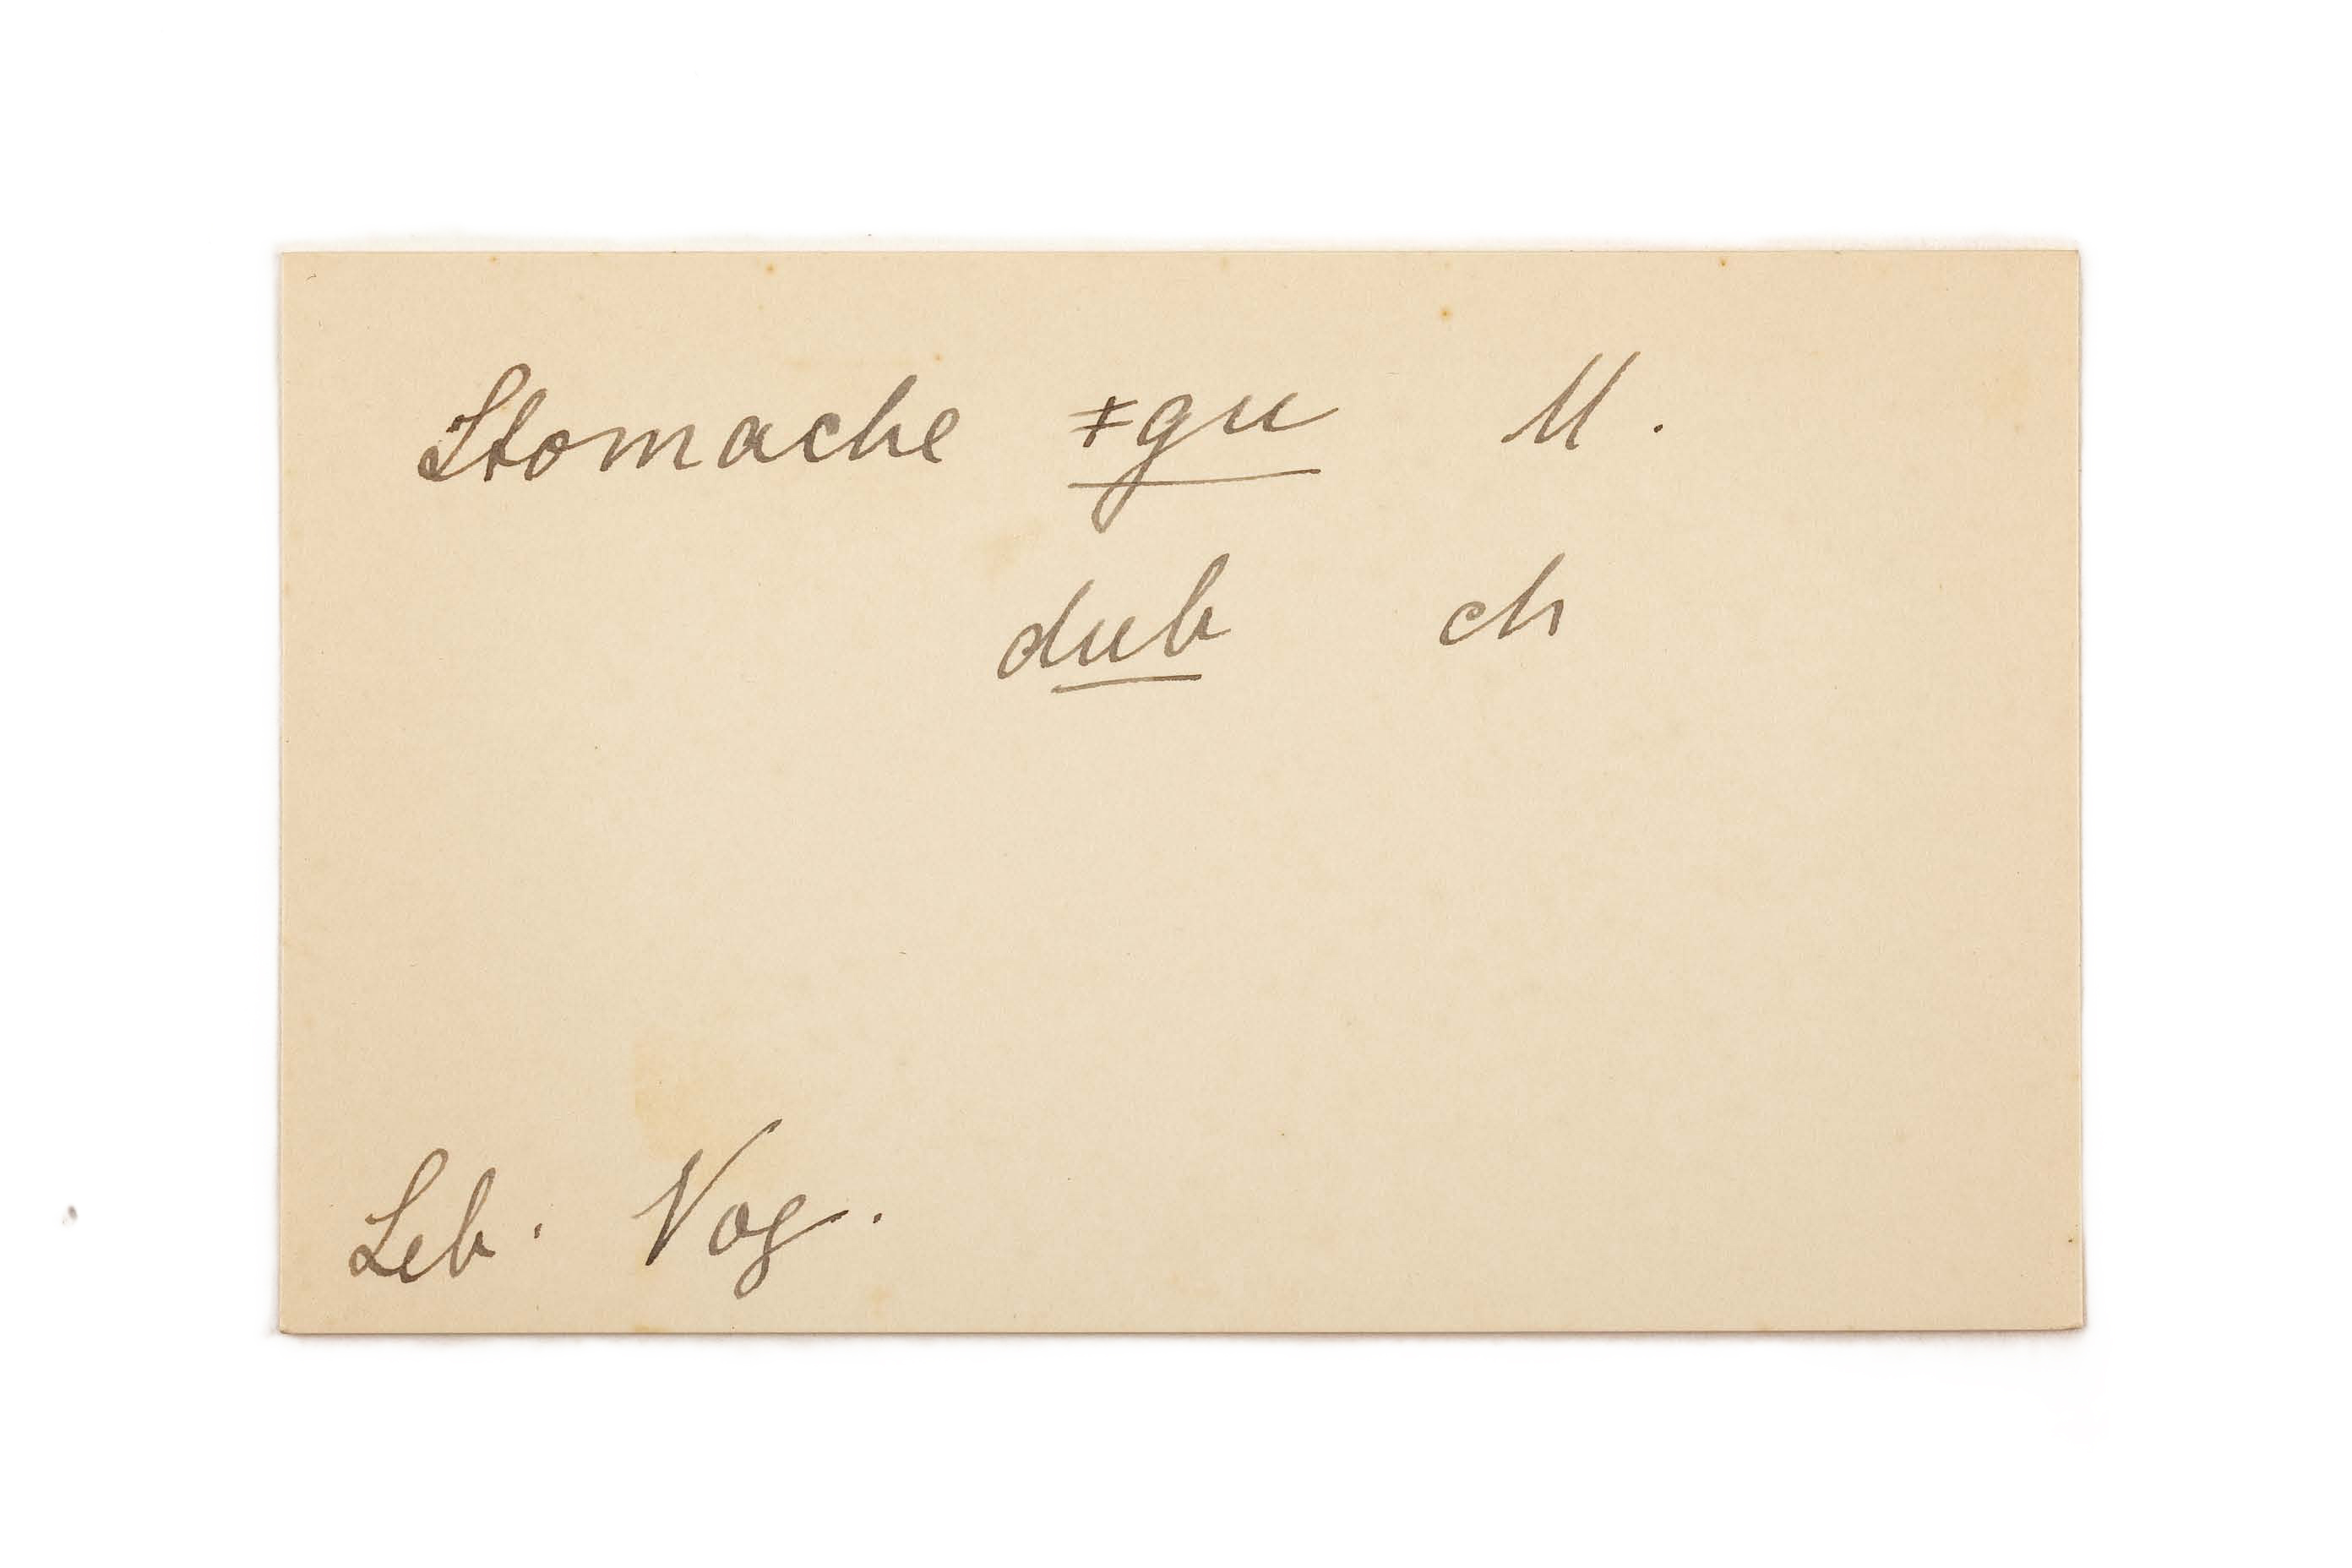 Stomache ǂgu M.
dub ch
Leb. Vog.